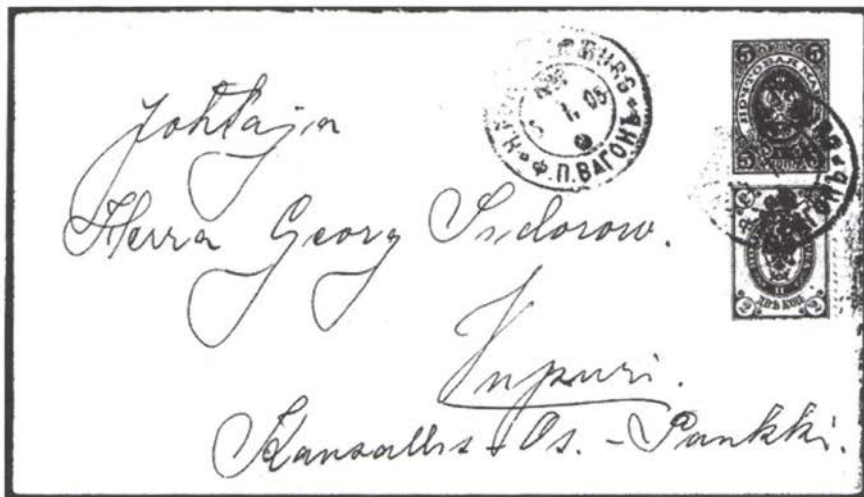 Johtaja
Herra Georg Isidorow.
Wiipuri.
Kansallis-Os.-Pankki.
5 1. 05
Ф.П.ВАГОНЪ
5 5
ПОЧТОВАЯ МАРКА
5 5
2 2
ДВѢ КОП.
ВАГОНЪ